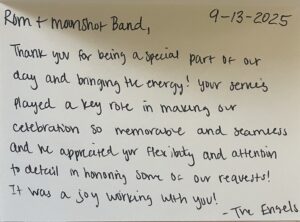 Rom + Moonshot Band, 9-13-2025
Thank you for being a special part of our
day and bringing the energy! Your services
played a key role in making our
celebration so memorable and seamless
and we appreciated your flexibility and attention
to detail in honoring some of our requests!
It was a joy working with you!
- The Engels